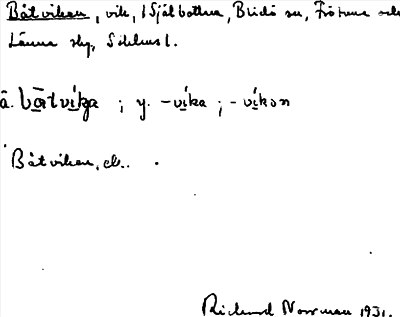 Båtviken, vik, i Själbottna, Blidö sn, Frötuna och
Länna skg, Sthlms l.
ä. båtvika ; y. -vika ; -vikən
Båtviken, ek..
Rickard Norrman 1931.